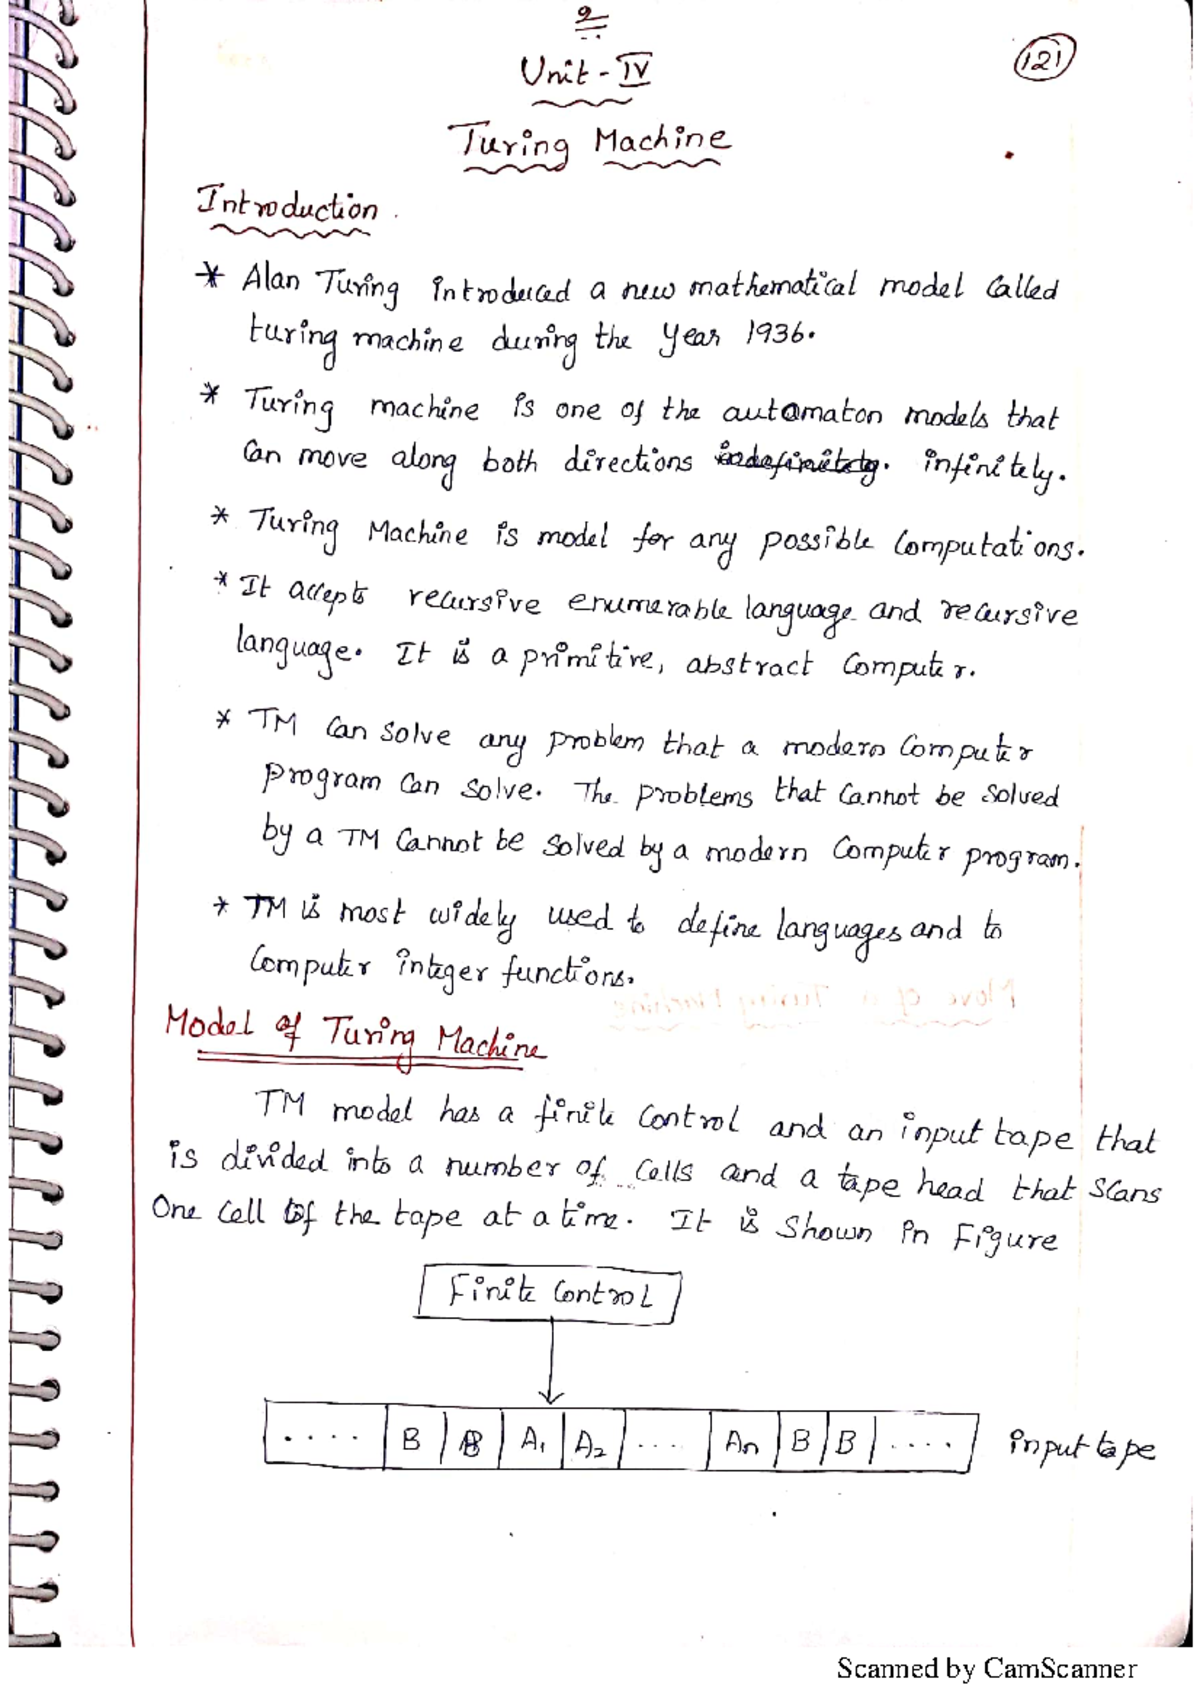 9
Unit - IV
121
Turing Machine
Introduction.
* Alan Turing introduced a new mathematical model called
turing machine during the year 1936.
* Turing machine is one of the automaton models that
Can move along both directions indefinitely. infinitely.
* Turing Machine is model for any possible Computations.
* It accepts recursive enumerable language and recursive
language. It is a primitive, abstract Computer.
* TM Can Solve any problem that a modern Computer
program Can Solve. The problems that Cannot be Solved
by a TM Cannot be Solved by a modern Computer program.
* TM is most widely used to define languages and to
Computer integer functions.
Move of a Turing Machine
Model of Turing Machine
TM model has a finite Control and an input tape that
is divided into a number of Cells and a tape head that Scans
One Cell of the tape at a time. It is Shown in Figure
Finite Control
.... B B A1 A2 .... An B B .... input tape
Scanned by CamScanner